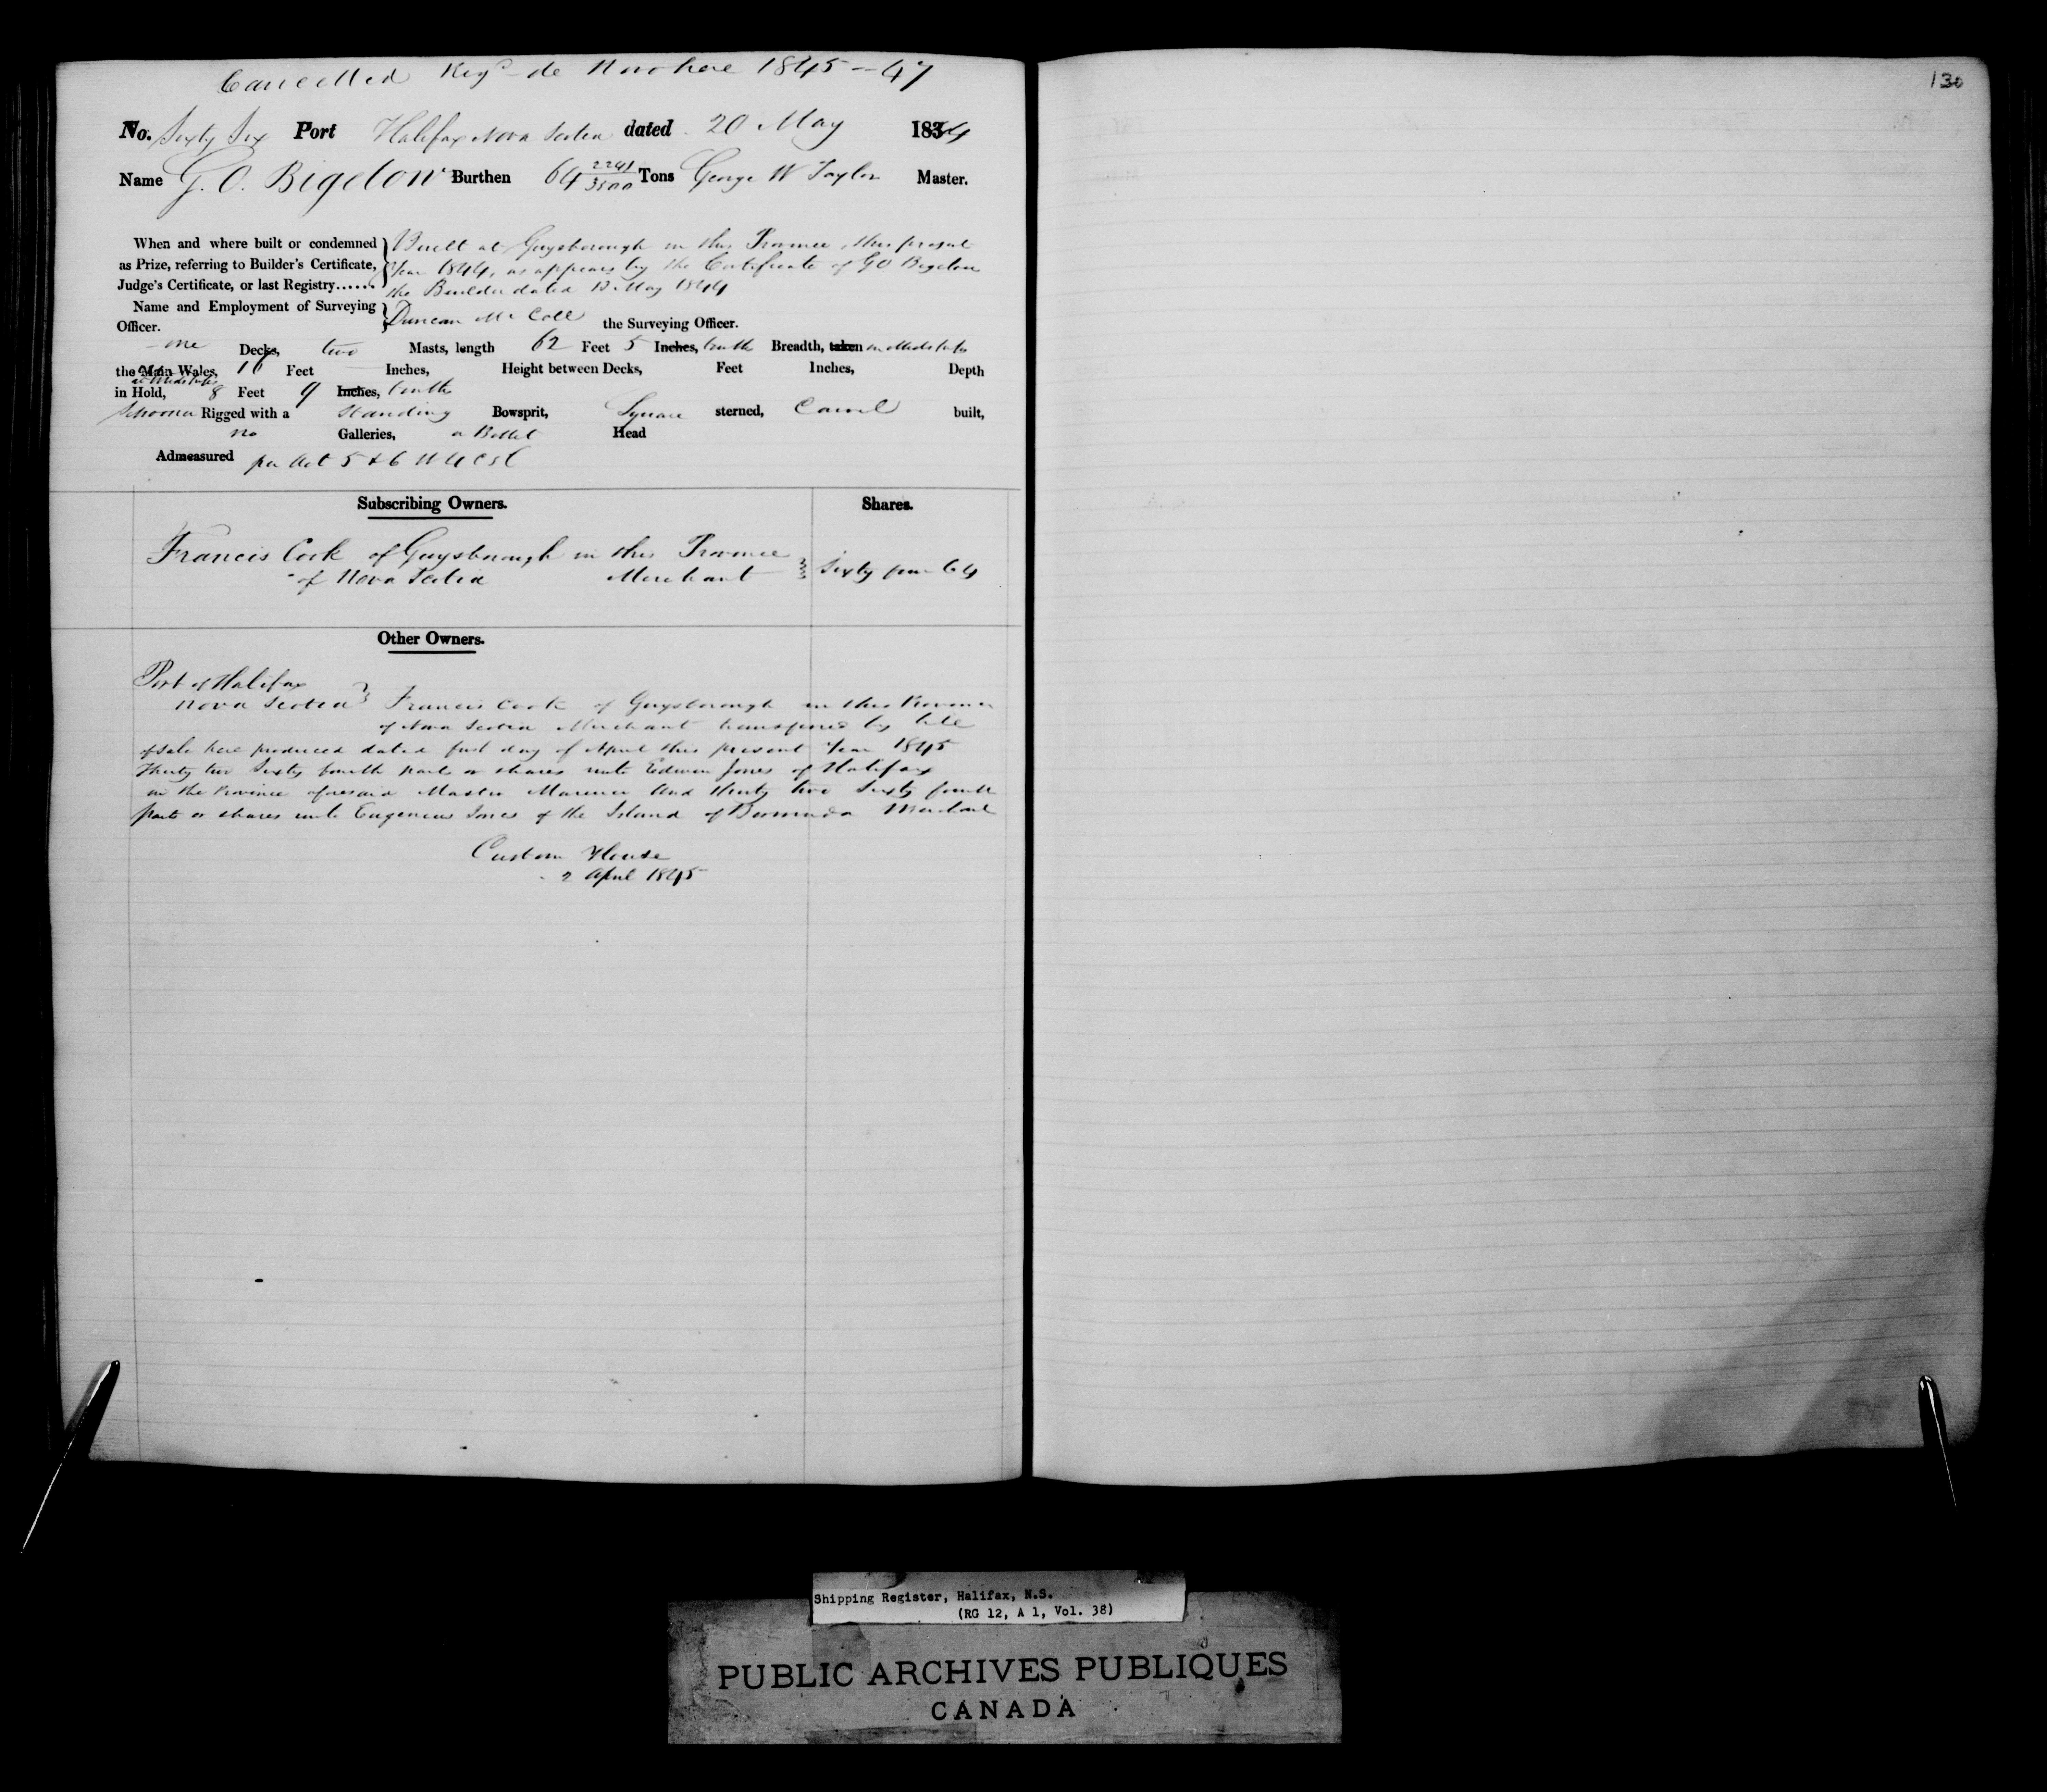 Cancelled Reg^d de Novo here 1845 - 47
130
No. Sixty Six Port Halifax Nova Scotia dated 20 May 1844
Name G. O. Bigelow Burthen 64 2241/3500 Tons George W Taylor Master.
When and where built or condemned as Prize, referring to Builder's Certificate, Judge's Certificate, or last Registry......
Built at Guysborough in this Province, this present
Year 1844, as appears by the Certificate of G O Bigelow
the Builder dated May 1844
Name and Employment of Surveying Officer.
Duncan Mc Coll the Surveying Officer.
one Decks, two Masts, length 62 Feet 5 Inches, tenths Breadth, taken in Midships
the Main Wales, Feet Inches, Height between Decks, Feet Inches, Depth
at Midships
in Hold, 8 Feet 9 Inches, tenths
Schooner Rigged with a Standing Bowsprit, Square sterned, Carvel built,
no Galleries, a Billet Head
Admeasured per Act 5 & 6
Subscribing Owners. Shares.
Francis Cook of Guysborough in this Province
of Nova Scotia Merchant } Sixty four 64
Other Owners.
Port of Halifax
Nova Scotia } Francis Cook of Guysborough in this Province
of Nova Scotia Merchant transferred by bill
of sale here produced dated first day of April this present Year 1845
Thirty two Sixty fourth parts or shares unto Edwin Jones of Halifax
in the Province aforesaid Master Mariner and thirty two Sixty fourth
parts or shares unto Eugenius Jones of the Island of Bermuda Merchant
Custom House
2 April 1845
Shipping Register, Halifax, N.S.
(RG 12, A 1, Vol. 38)
PUBLIC ARCHIVES PUBLIQUES
CANADA